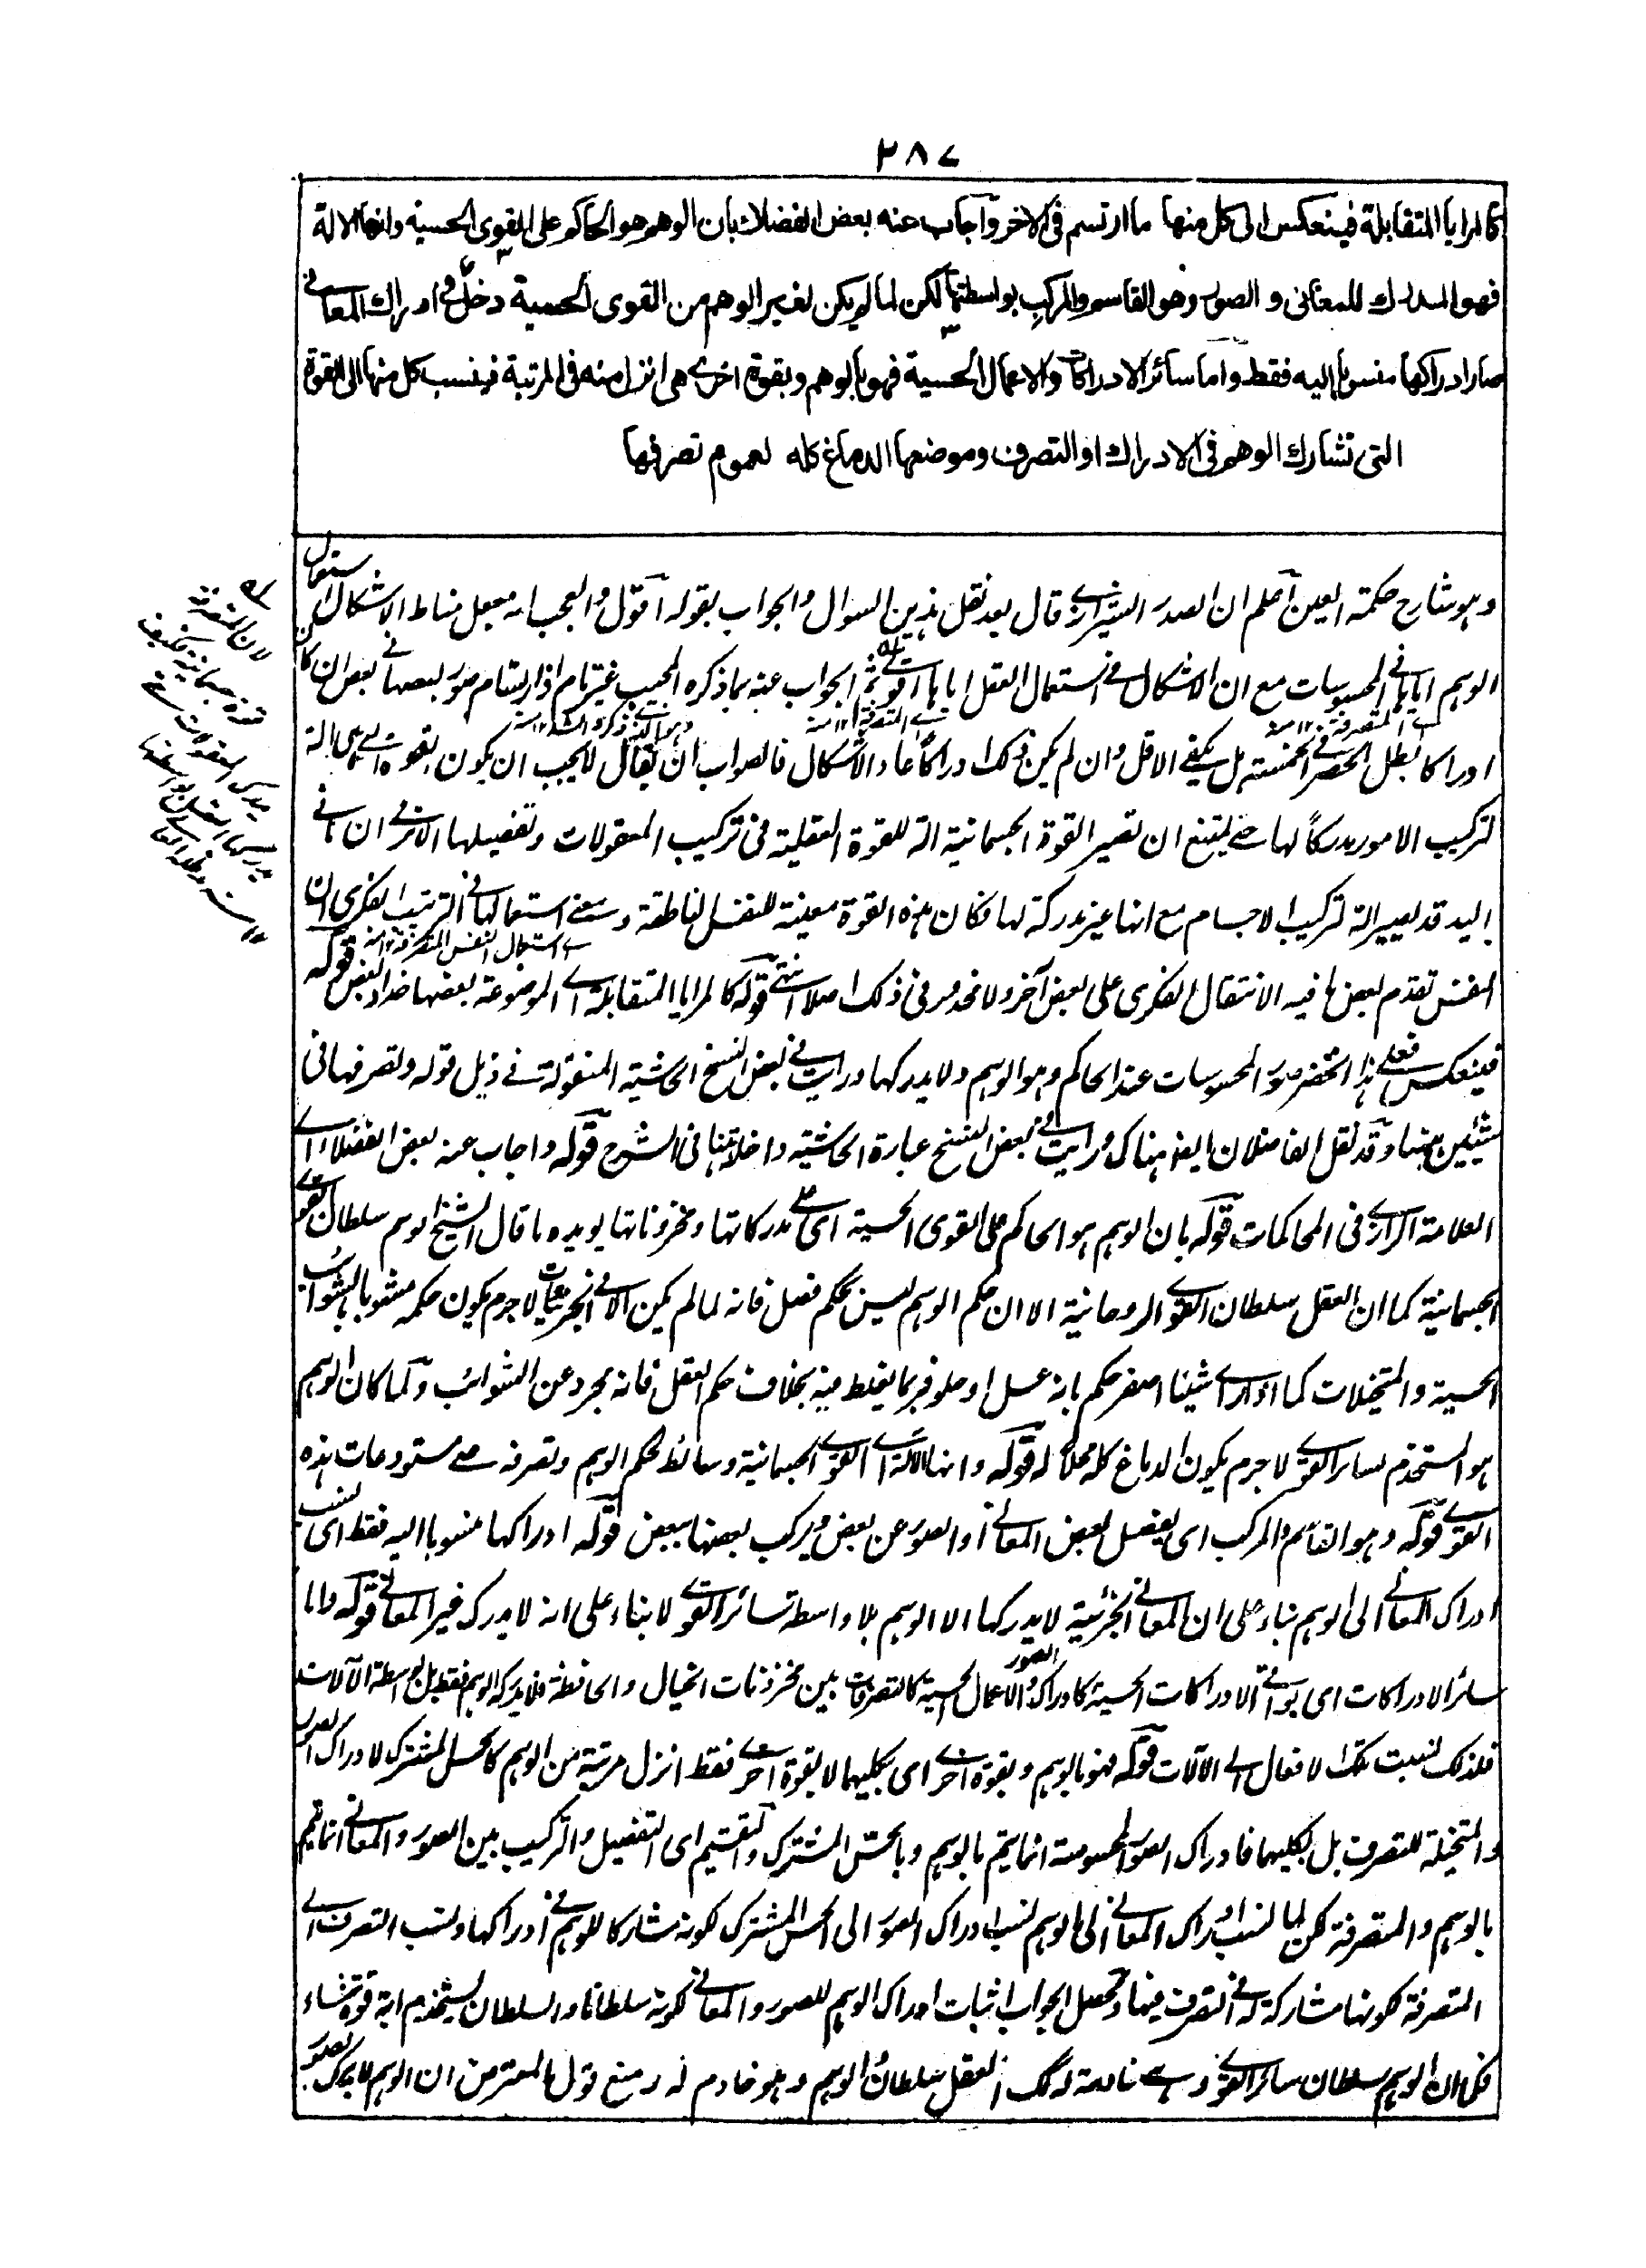 ٢٨٧
كالمرايا المتقابلة فينعكس الى كل منها ما ارتسم فى الاخر وآجاب عنه بعض الفضلاء بان الوهم هو الحاكم على القوى الحسية وانها الالة
فهو المدرك للمعانى و الصور وهو القاسم والمركب بواسطتها لكن لما لم يكن لغير الوهم من القوى الحسية دخل فى ادراك المعانى
صار ادراكها منسوبا اليه فقط واما سائر الادراكات والاعمال الحسية فهو بالوهم وبقوة اخرى هى انزل منه فى المرتبة فينسب كل منها الى القوة
التى تشارك الوهم فى الادراك او التصرف وموضعها الدماغ كله لعموم تصرفها
وہو شارح حكمة العين آعلم ان الصدر الشيرازى قال بعد نقل ہذين السوال والجواب بقوله اقول والعجب انه جعل مناط الاشكال استعمال
الوہم اياہا فى المحسوسات مع ان الاشكال فى استعمال العقل اياہا اقوى ثم الجواب عنه بما ذكره المجيب غير تام اذ ارتسام صور بعضہا فى بعض ان كان
ادراكا بطل الحصر فى الخمسة بل يكفى الاقل وان لم يكن ذلك ادراكاً عاد الاشكال فالصواب ان يقال لا يجب ان يكون القوة التى ہى الة
لتركيب الامور مدركاً لها حتى يمتنع ان تصير القوة الجسمانية الة للقوة العقلية فى تركيب المعقولات وتفصيلها الا ترى ان
اليد قد تصير الة لتركيب الاجسام مع انها غير مدركة لها فكان ہذه القوة معينة للنفس الناطقة ومعنى استعمالها فى الترتيب الفكرى ان
النفس تقدم بعض ما فيه الانتقال الفكرى على بعض آخر ولا محذور فى ذلك اصلا انتهى قوله كالمرايا المتقابلة اى الموضوعة بعضها حذاء البعض قوله
فينعكس فعلى ہذا تحضر صور المحسوسات عند الحاكم وہو الوہم ولا يدركها ورايت فى بعض النسخ الحاشية المنقولة فى ذيل قوله وتصرفها فى
شيئين ہہنا وقد نقل الفاضلان ايضا ہناك ورايت فى بعض النسخ عبارة الحاشية داخلة ہنا فى الشرح قوله واجاب عنه بعض الفضلاء اى
العلامة الرازى فى المحاكمات قوله بان الوہم ہو الحاكم على القوى الحسية اى على مدركاتها ومخزوناتها يويده ما قال الشيخ الوہم سلطان القوى
الجسمانية كما ان العقل سلطان القوى الروحانية الا ان حكم الوہم ليس بحكم فصل فانه لما لم يكن الا فى الجزئيات لا جرم يكون حكمه مشوبا بالشوائب
الحسية والتخيلات كما اذا راى شيئا اصفر حكم بانه عسل او حلو فربما يغلط فيه بخلاف حكم العقل فانه مجرد عن الشوائب ولما كان الوہم
ہو المستخدم لسائر القوى لا جرم يكون الدماغ كله محلاً له قوله وانها الالة اى القوى الجسمانية وسائط لحكم الوہم وتصرفه فى مستودعات ہذه
القوى قوله وہو القاسم والمركب اى يفصل بعض المعانى او الصور عن بعض ويركب بعضها ببعض قوله ادراكها منسوبا اليه فقط اى نسب
ادراك المعانى الى الوہم بناء على ان المعانى الجزئية لا يدركها الا الوہم بلا واسطة سائر القوى لا بناء على انه لا يدرك غير المعانى قوله واما
سائر الادراكات اى بواقى الادراكات الحسية كادراك الصور والاعمال الحسية كالتصرفات بين مخزونات الخيال والحافظة فلا يدركه الوہم فقط بل بواسطة الآلات
فلذلك نسبت تلك الافعال الى الآلات قوله فهو بالوہم وبقوة اخرى اى بكليهما لا بقوة اخرى فقط انزل مرتبة من الوہم كالحس المشترك لادراك الصور
والمتخيلة للتصرف بل بكليهما فادراك الصور المحسوسة انما يتم بالوہم وبالحس المشترك والتقسيم اى التفصيل والتركيب بين الصور والمعانى انما يتم
بالوہم والمتصرفة لكن لما نسب ادراك المعانى الى الوہم نسب ادراك الصور الى الحس المشترك لكونه مشاركا للوہم فى ادراكها ونسب التصرف الى
المتصرفة لكونها مشاركة له فى التصرف فيها ومحصل الجواب اثبات ادراك الوہم للصور والمعانى لكونه سلطانا والسلطان يستخدم اية قوة شاء
فكما ان الوہم سلطان سائر القوى وہى خادمة له كذلك العقل سلطان الوہم وہو خادم له ومنع قول المعترض ان الوہم لا يدرك الصور